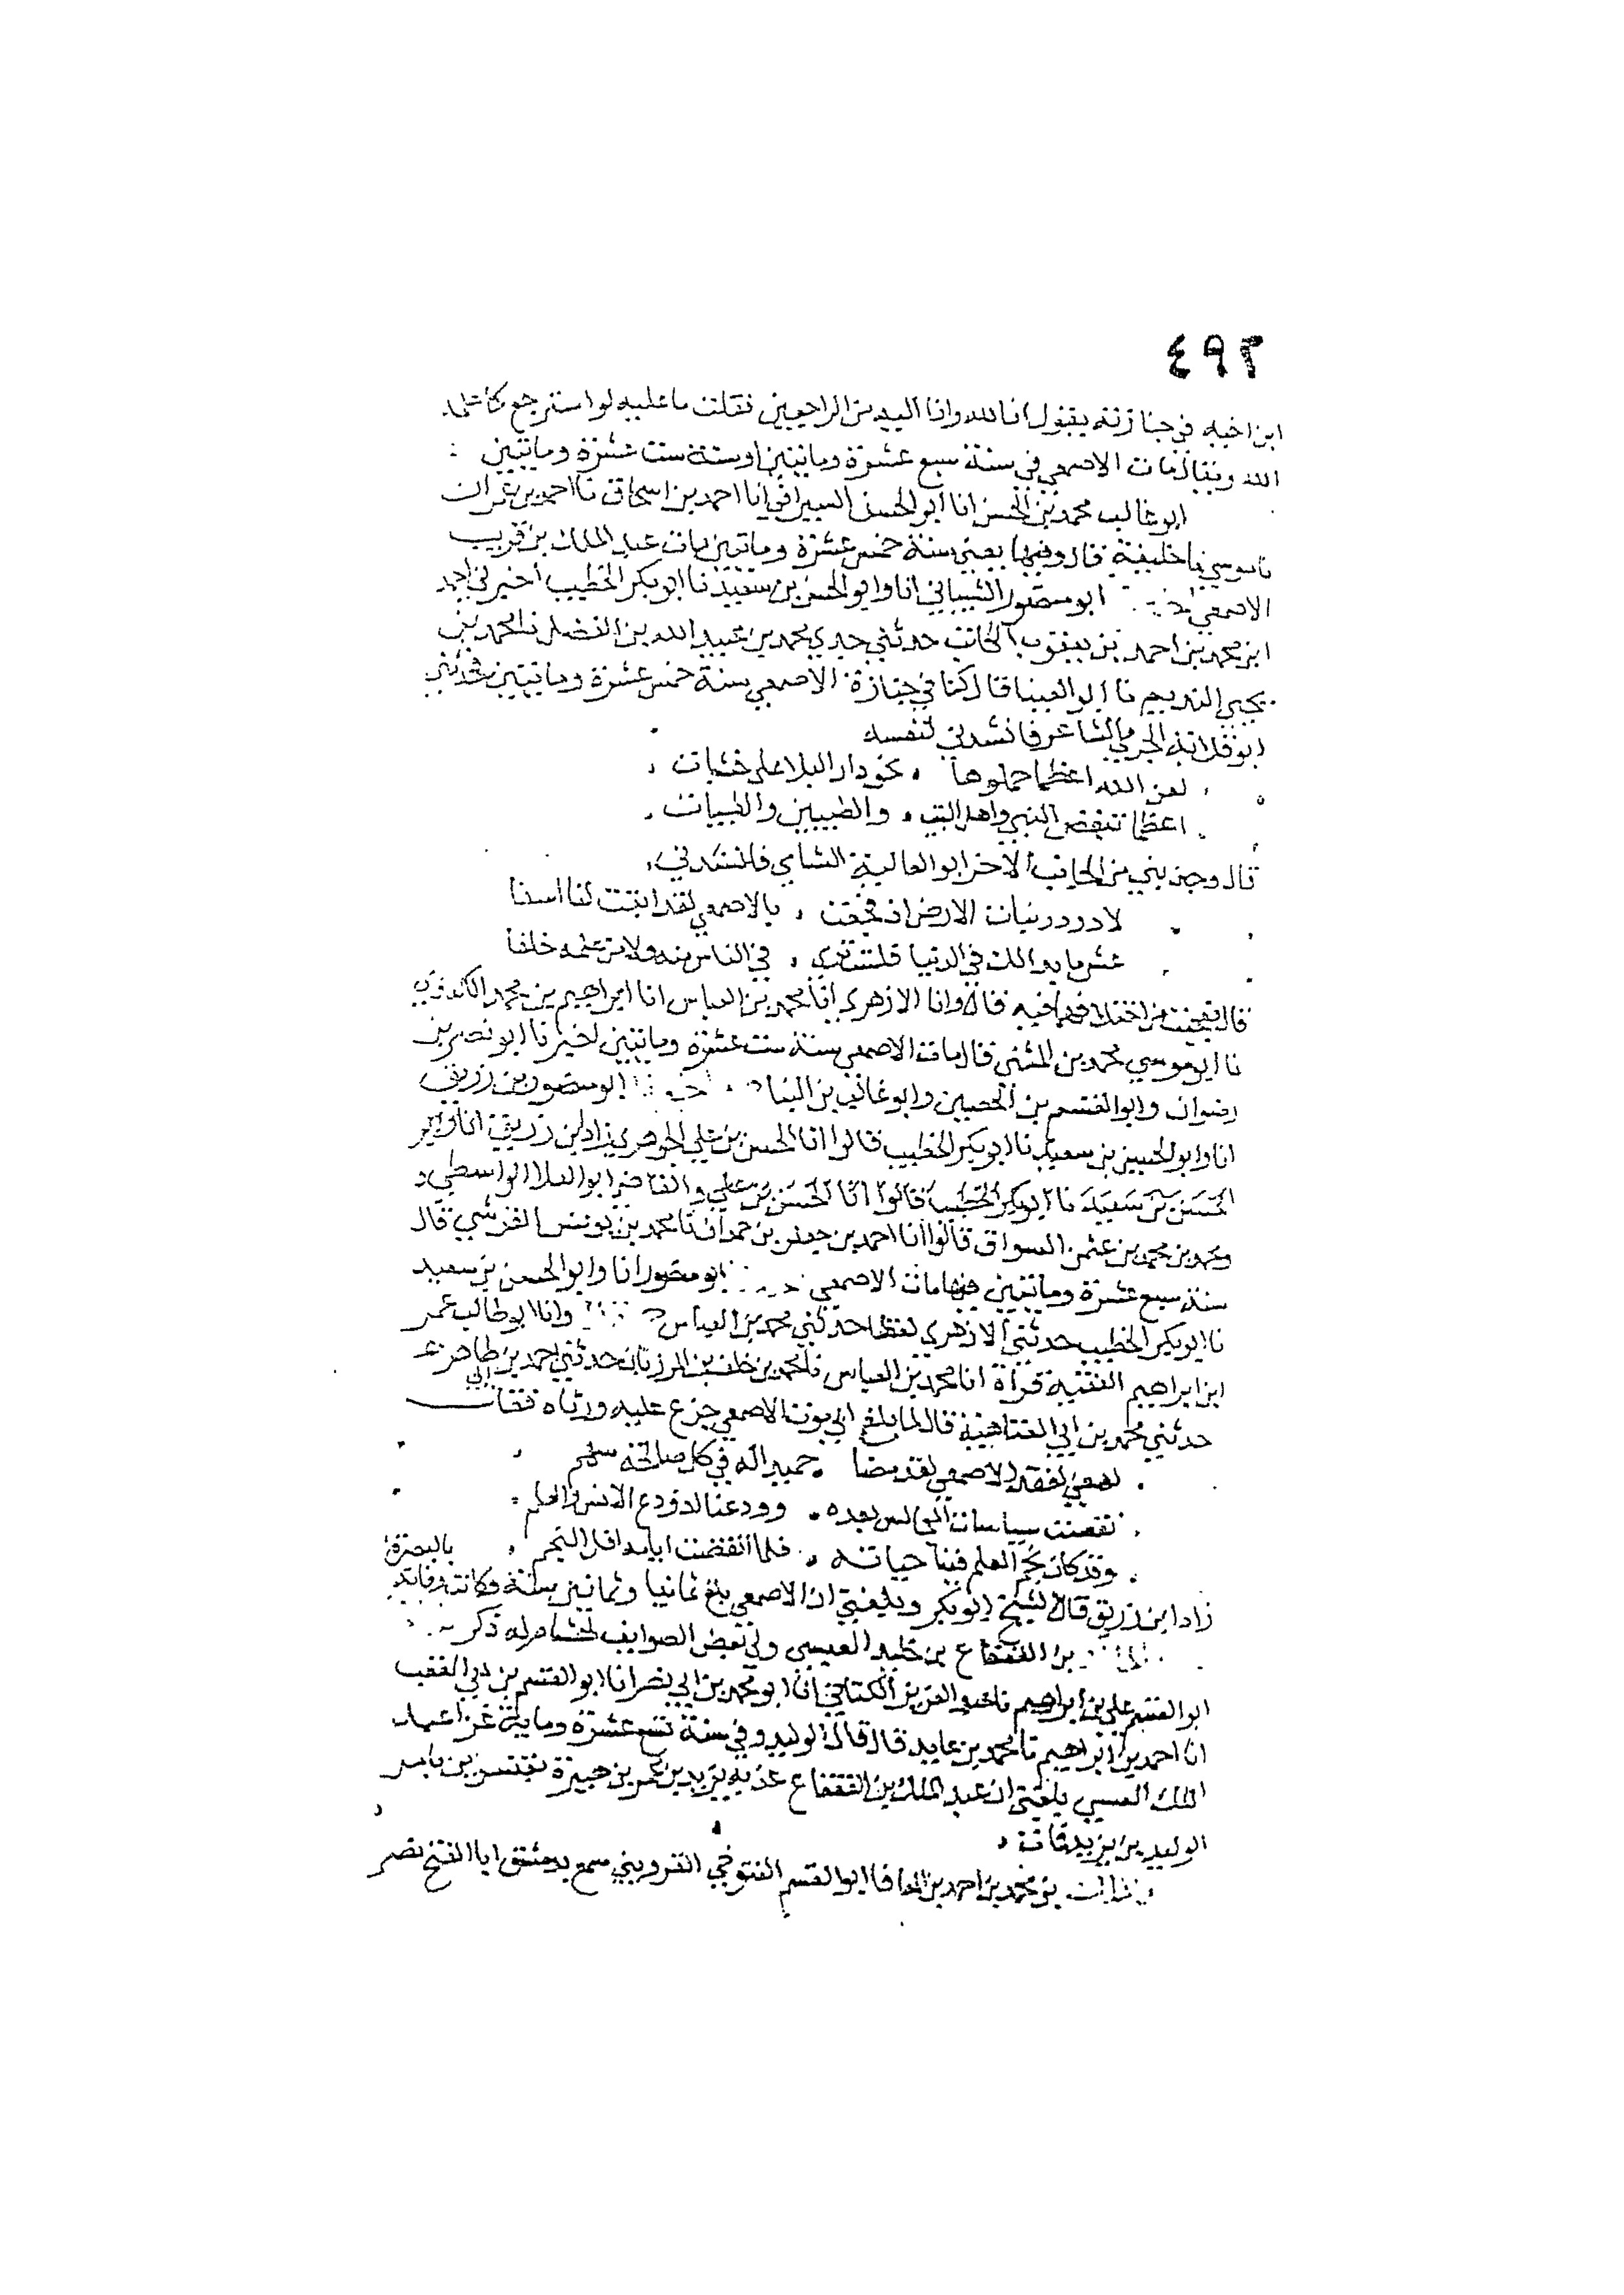 ٤٩٣
ابن اخيه في جنازته يقول انا لله وانا اليه من الراجعين فقلت ما عليه لو استرجع كما علمه
الله ويقال مات الاصمعي في سنة سبع عشرة ومائتين او سنة ست عشرة ومائتين
ابو غالب محمد بن الحسن انا ابو الحسن السيرافي انا احمد بن اسحاق نا احمد بن عمران
نا موسي نا خليفة قال وفيها يعني سنة خمس عشرة وماتين مات عبد الملك بن قريب
الاصمعي ابو منصور الشيباني انا وابو الحسن بن سعيد نا ابو بكر الخطيب أخبرني احمد
ابن محمد بن احمد بن يعقوب الكاتب حدثني جدي محمد بن عبيد الله بن الفضل نا محمد بن
يحيي النديم نا ابو العينا قال كنا في جنازة الاصمعي سنة خمس عشرة ومايتين فحدثني
ابو قلابة الجرمي الشاعر فانشدني لنفسه
لعن الله اعظما حملوها نحو دار البلا على خشبات
اعظما تبغض النبي واهل البيت والطيبين والطيبات
قال وجذبني من الجانب الاخر ابو العالية الشامي فانشدني
لا در در نبات الارض اذ فجعت بالاصمعي لقد ابقت لنا اسفا
عش ما بدا لك في الدنيا فلست تري في الناس منه ولا من علمه خلفا
قال فعجبت من اختلافهما فيه قال وانا الازهري انا محمد بن العباس انا ابراهيم بن محمد الكندي
نا ابو موسي محمد بن المثني قال مات الاصمعي سنة ست عشرة ومايتين اخبرنا ابو نصر بن
رضوان وابو القسم بن الحصين وابو غالب بن البنا ابو منصور بن زريق
انا وابو الحسين بن سعيد نا ابو بكر الخطيب قالوا انا الحسن بن علي الجوهري زاد ابن زريق انا وابو
الحسن بن سعيد نا ابو بكر الخطيب قالوا انا الحسن بن علي والقاضي ابو العلا الواسطي
ومحمد بن محمد بن عثمن السواق قالوا انا احمد بن جعفر بن حمدان نا محمد بن يونس القرشي قال
سنة سبع عشرة ومايتين فيها مات الاصمعي ابو منصور انا وابو الحسن بن سعيد
نا ابو بكر الخطيب حدثني الازهري لفظا حدثني محمد بن العباس وانا ابو طالب عمر
ابن ابراهيم الفقيه قراة انا محمد بن العباس نا محمد بن خلف بن المرزبان حدثني احمد بن ابي طاهر
حدثني محمد بن ابي العتاهية قال لما بلغ ابي موت الاصمعي جزع عليه ورثاه فقال
لهفي لفقد الاصمعي لقد مضا حميدا له في كل صالحة سهم
تقضت بشاشات المجالس بعده وودعنا اذ ودع الانس والعلم
وقد كان نجم العلم فينا حياته فلما انقضت ايامه افل النجم
زاد ابن زريق قال الشيخ ابو بكر وبلغني ان الاصمعي بلغ ثمانيا وثمانين سنة وكانت وفاته بالبصرة
بن القعقاع بن خليد العبسي ولي بعض الصوايف لهشام له ذكر
ابو القسم علي بن ابراهيم نا عبد العزيز الكتاني انا ابو محمد بن ابي نصر انا ابو القسم بن ابي العقب
انا احمد بن ابراهيم نا محمد بن عايد قال قال الوليد وفي سنة تسع عشرة وماية غزا عبد
الملك العبسي بلغني ان عبد الملك بن القعقاع عذبه يزيد بن عمر بن هبيرة بقنسرين بامر
الوليد بن يزيد فمات
بن محمد بن احمد بن المعافا ابو القسم القزويني سمع بدمشق ابا الفتح نصر